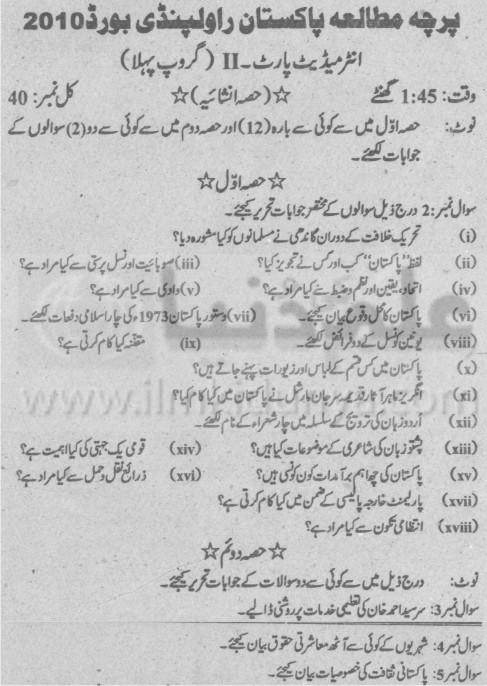 پرچہ مطالعہ پاکستان راولپنڈی بورڈ 2010
انٹرمیڈیٹ پارٹ۔ II (گروپ پہلا)
وقت: 1:45 گھنٹے ☆(حصہ انشائیہ)☆ کل نمبر: 40
نوٹ: حصہ اوّل میں سے کوئی سے بارہ (12) اور حصہ دوم میں سے کوئی سے دو (2) سوالوں کے
جوابات لکھئے۔
☆ حصہ اوّل ☆
سوال نمبر: 2 درج ذیل سوالوں کے مختصر جوابات تحریر کیجئے۔
(i) تحریک خلافت کے دوران گاندھی نے مسلمانوں کو کیا مشورہ دیا؟
(ii) لفظ "پاکستان" کب اور کس نے تجویز کیا؟ (iii) صوبائیت اور نسل پرستی سے کیا مراد ہے؟
(iv) اتحاد، یقین اور نظم و ضبط سے کیا مراد ہے؟ (v) وادی سے کیا مراد ہے؟
(vi) پاکستان کا محل وقوع بیان کیجئے۔ (vii) دستور پاکستان 1973ء کی چار اسلامی دفعات لکھئے۔
(viii) یونین کونسل کے دو فرائض لکھئے۔ (ix) مقننہ کیا کام کرتی ہے؟
(x) پاکستان میں کس قسم کے لباس اور زیورات پہنے جاتے ہیں؟
(xi) انگریز ماہر آثار قدیمہ سر جان مارشل نے پاکستان میں کیا کام کیا؟
(xii) اُردو زبان کی ترویج کے سلسلہ میں چار شعراء کے نام لکھئے۔
(xiii) پشتو زبان کی شاعری کے موضوعات کیا ہیں؟ (xiv) قومی یک جہتی کی کیا اہمیت ہے؟
(xv) پاکستان کی چھ اہم برآمدات کون کونسی ہیں؟ (xvi) ذرائع نقل و حمل سے کیا مراد ہے؟
(xvii) پارلیمنٹ خارجہ پالیسی کے ضمن میں کیا کام کرتی ہے؟
(xviii) انتظامی تکون سے کیا مراد ہے؟
☆ حصہ دوئم ☆
نوٹ: درج ذیل میں سے کوئی سے دو سوالات کے جوابات تحریر کیجئے۔
سوال نمبر 3: سرسید احمد خان کی تعلیمی خدمات پر روشنی ڈالیے۔
سوال نمبر 4: شہریوں کے کوئی سے آٹھ معاشرتی حقوق بیان کیجئے۔
سوال نمبر 5: پاکستانی ثقافت کی خصوصیات بیان کیجئے۔